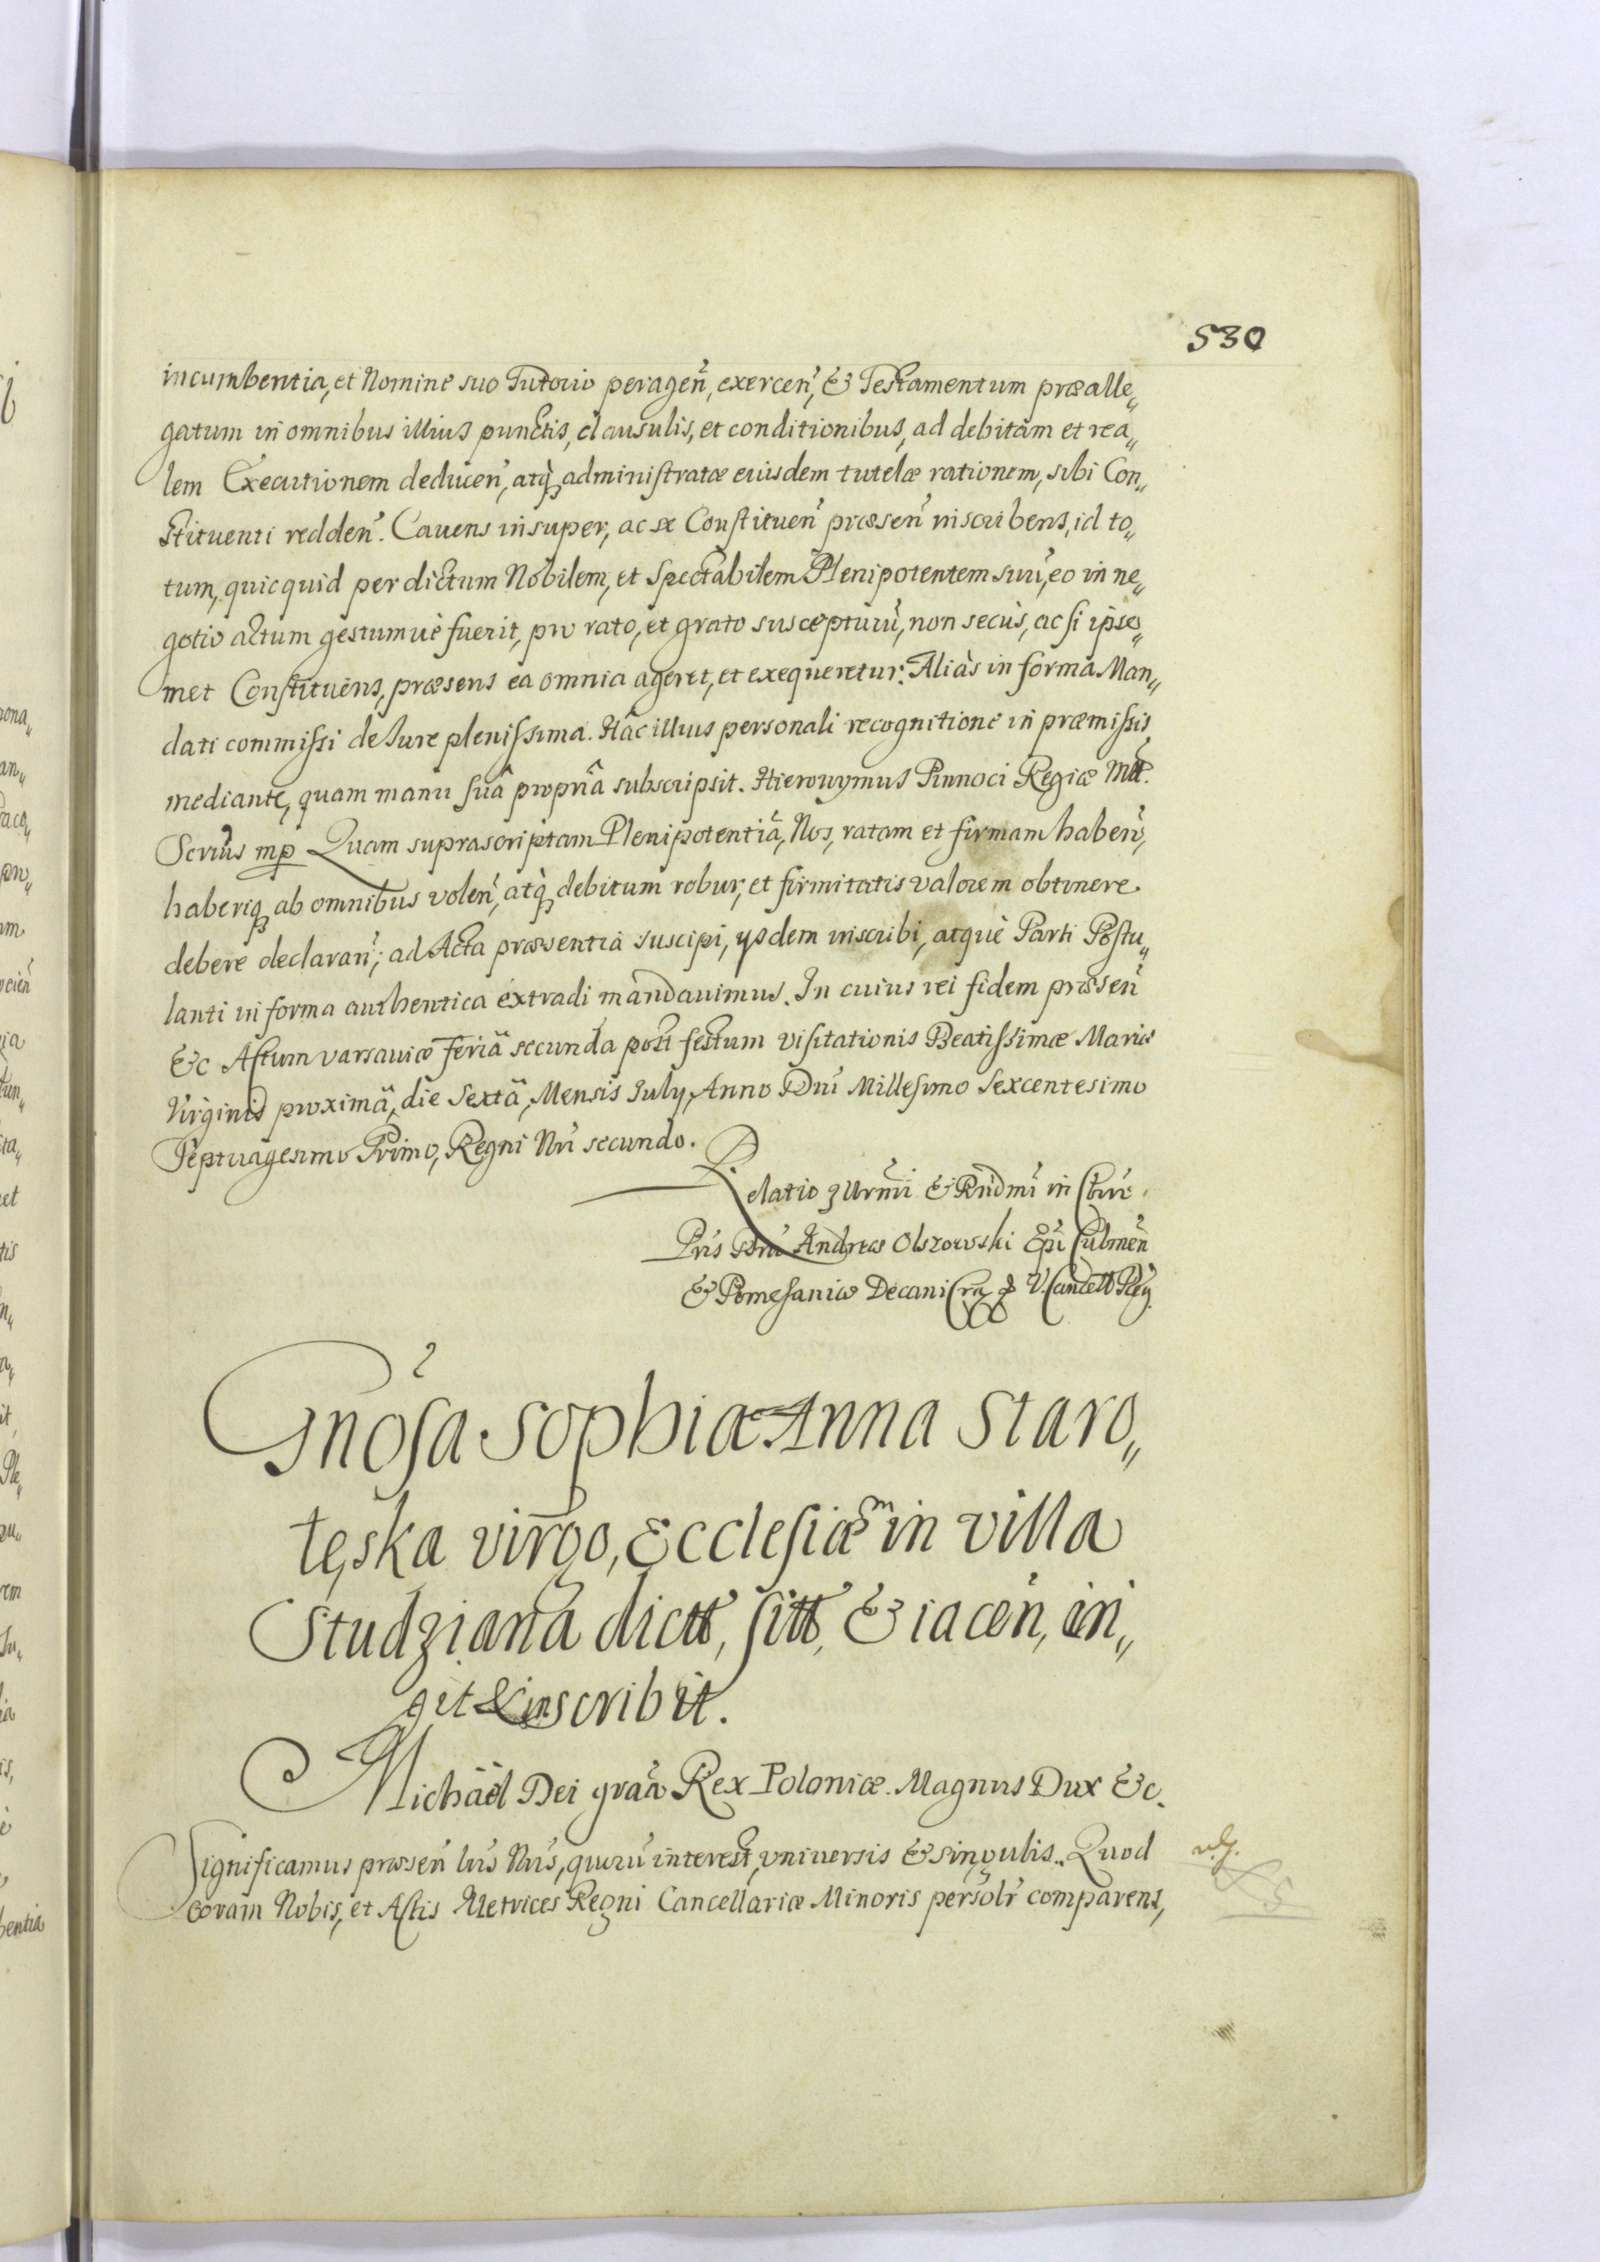 530
incumbentia, et Nomine suo Tutorio peragen̄, exercen̄, & Testamentum præalle„
gatum in omnibus illius punctis, clausulis, et conditionibus, ad debitam et rea„
lem Executionem deducen̄, atq̨ administratæ eiusdem tutelæ rationem, sibi Con„
stituenti redden̄. Cavens insuper, ac se Constituen̄ præsen̄ inscribens, id to„
tum, quicquid per dictum Nobilem, et Spectabilem Plenipotentem suū, eo in ne„
gotio actum gestumuè fuerit, pro rato, et grato suscepturū, non secùs, ac si ipse„
met Constituens, præsens ea omnia ageret, et exequeretur. Aliàs in forma Man„
dati commissi de Iure plenissima. Hâc illius personali recognitione in præmissis
mediante, quam manu suâ propriâ subscripsit. Hieronymus Pinnoci Regiæ Mtt̄.
Scrīus mp̄ Quam suprascriptam Plenipotentiā, Nos, ratam et firmam haben̄,
haberiq̨ ab omnibus volen̄, atq̨ debitum robur, et firmitatis valorem obtinere
debere declaran̄; ad Acta præsentia suscipi, ysdem inscribi, atquè Parti Postu„
lanti in forma authentica extradi mandauimus. In cuius rei fidem præsen̄
&c Actum varsauiæ feriâ secunda post festum visitationis Beatissimæ Mariæ
Virginis proximâ, die Sextâ, Mensis July, Anno Dn̄i Millesimo Sexcentesimo
Septuagesimo Primo, Regni Nr̄i secundo.
Relatio Illrm̄i & Rn̄dmi in Chro
Pr̄is Dn̄i Andreæ Olszowski Ep̄i Culmen̄
& Pomesaniæ Decani Crac V. Cancell Reg
Gn̄osa Sophia Anna Staro„
tęska virgo, Ecclesiæ in villa
Studziana dictt, sitt, & iacen̄, in„
git & inscribit.
Michäel Dei gr̄aa Rex Poloniæ. Magnus Dux &c.
Significamus præsen̄ lr̄is Nr̄is, quorū interest, vniuersis & singulis. Quod
coram Nobis, et Actis Metrices Regni Cancellariæ Minoris persolr̄ comparens,